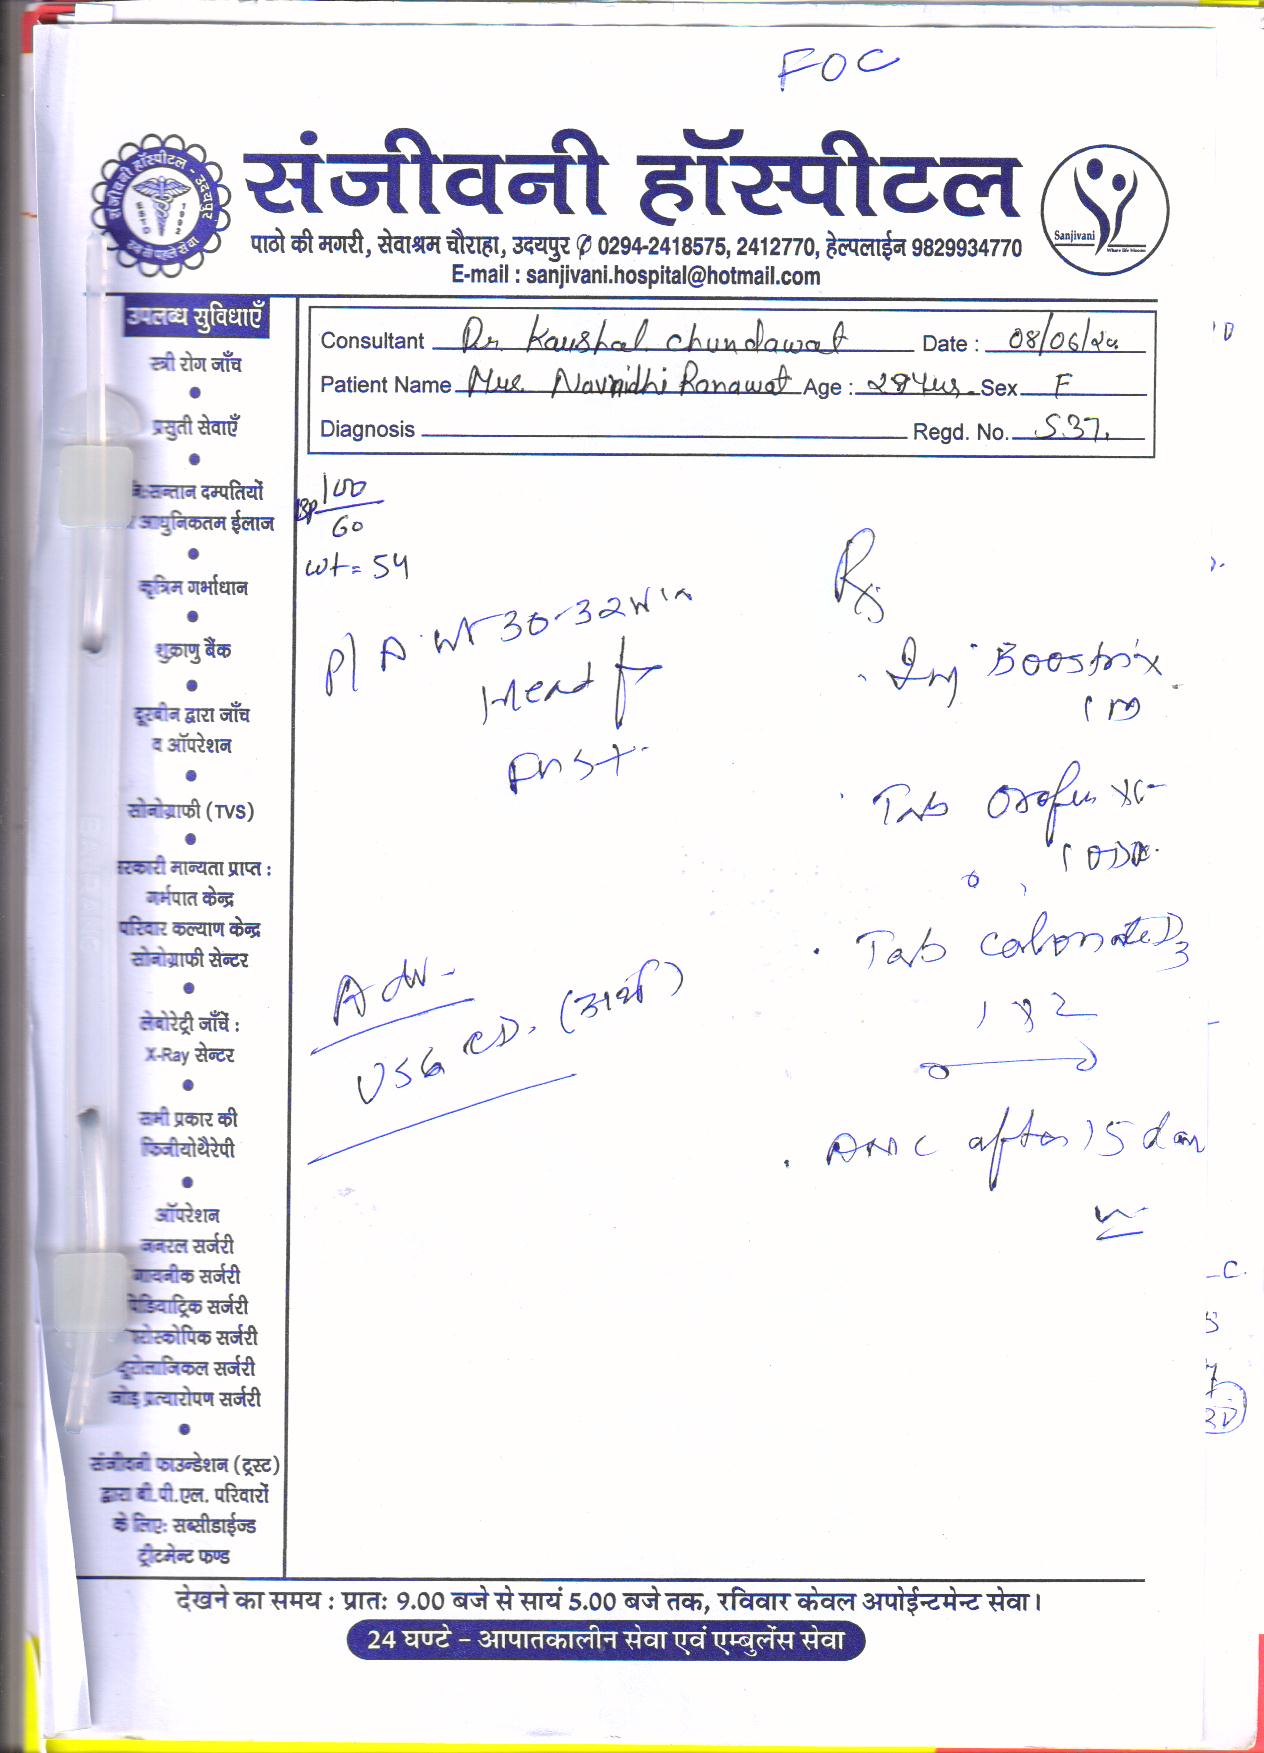 FOC
संजीवनी हॉस्पीटल
पाठो की मगरी, सेवाश्रम चौराहा, उदयपुर ✆ 0294-2418575, 2412770, हेल्पलाईन 9829934770
E-mail : sanjivani.hospital@hotmail.com
संजीवनी हॉस्पीटल - उदयपुर
ESTD 1992
Sanjivani
Consultant Dr. Kaushal Chundawat Date : 08/06/20
Patient Name Navnidhi Ranawat Age : 28 Yrs. Sex F
Diagnosis Regd. No. S.37.
उपलब्ध सुविधाएँ
स्त्री रोग जाँच
प्रसुती सेवाएँ
नि:सन्तान दम्पतियों
आधुनिकतम ईलाज
कृत्रिम गर्भाधान
शुक्राणु बैंक
दूरबीन द्वारा जाँच
व ऑपरेशन
सोनोग्राफी (TVS)
सरकारी मान्यता प्राप्त :
गर्भपात केन्द्र
परिवार कल्याण केन्द्र
सोनोग्राफी सेन्टर
लेबोरेट्री जाँचें :
X-Ray सेन्टर
सभी प्रकार की
फिजीयोथैरेपी
ऑपरेशन
जनरल सर्जरी
गायनीक सर्जरी
पेडियाट्रिक सर्जरी
सर्जरी
यूरोलाजिकल सर्जरी
जोड़ प्रत्यारोपण सर्जरी
संजीवनी फाउन्डेशन (ट्रस्ट)
द्वारा बी.पी.एल. परिवारों
के लिए: सब्सीडाईज्ड
ट्रीटमेन्ट फण्ड
BP 100/60
wt = 54
P/A 30-32 W
Head
FHS +
Adv -
USG CD.
Rx
Inj Boostrix
IM
Tab Orofer XT
1 OD
Tab D3
1 x 2
ANC after 15 days
देखने का समय : प्रातः 9.00 बजे से सायं 5.00 बजे तक, रविवार केवल अपोईन्टमेन्ट सेवा।
24 घण्टे – आपातकालीन सेवा एवं एम्बुलेंस सेवा